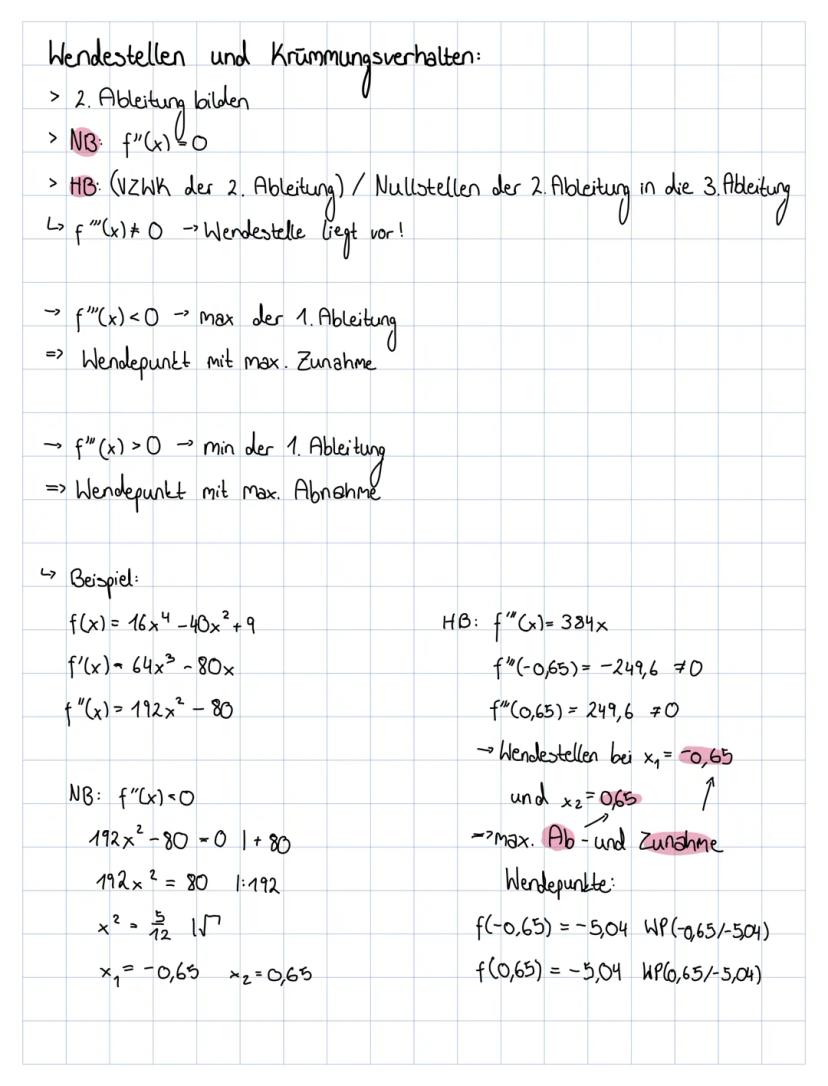 Wendestellen und Krümmungsverhalten:
> 2. Ableitung bilden
> NB: f"(x) = 0
> HB: (VZWK der 2. Ableitung) / Nullstellen der 2. Ableitung in die 3. Ableitung
↳ f'''(x) ≠ 0 → Wendestelle liegt vor!
→ f'''(x) < 0 → max der 1. Ableitung
=> Wendepunkt mit max. Zunahme
→ f'''(x) > 0 → min der 1. Ableitung
=> Wendepunkt mit max. Abnahme
↳ Beispiel:
f(x) = 16x⁴ - 40x² + 9
f'(x) = 64x³ - 80x
f"(x) = 192x² - 80
NB: f"(x) = 0
192x² - 80 = 0 | + 80
192x² = 80 |:192
x² = 5/12 |√
x₁ = -0,65 x₂ = 0,65
HB: f'''(x) = 384x
f'''(-0,65) = -249,6 ≠ 0
f'''(0,65) = 249,6 ≠ 0
→ Wendestellen bei x₁ = -0,65
und x₂ = 0,65
=> max. Ab- und Zunahme
Wendepunkte:
f(-0,65) = -5,04 WP(-0,65/-5,04)
f(0,65) = -5,04 WP(0,65/-5,04)